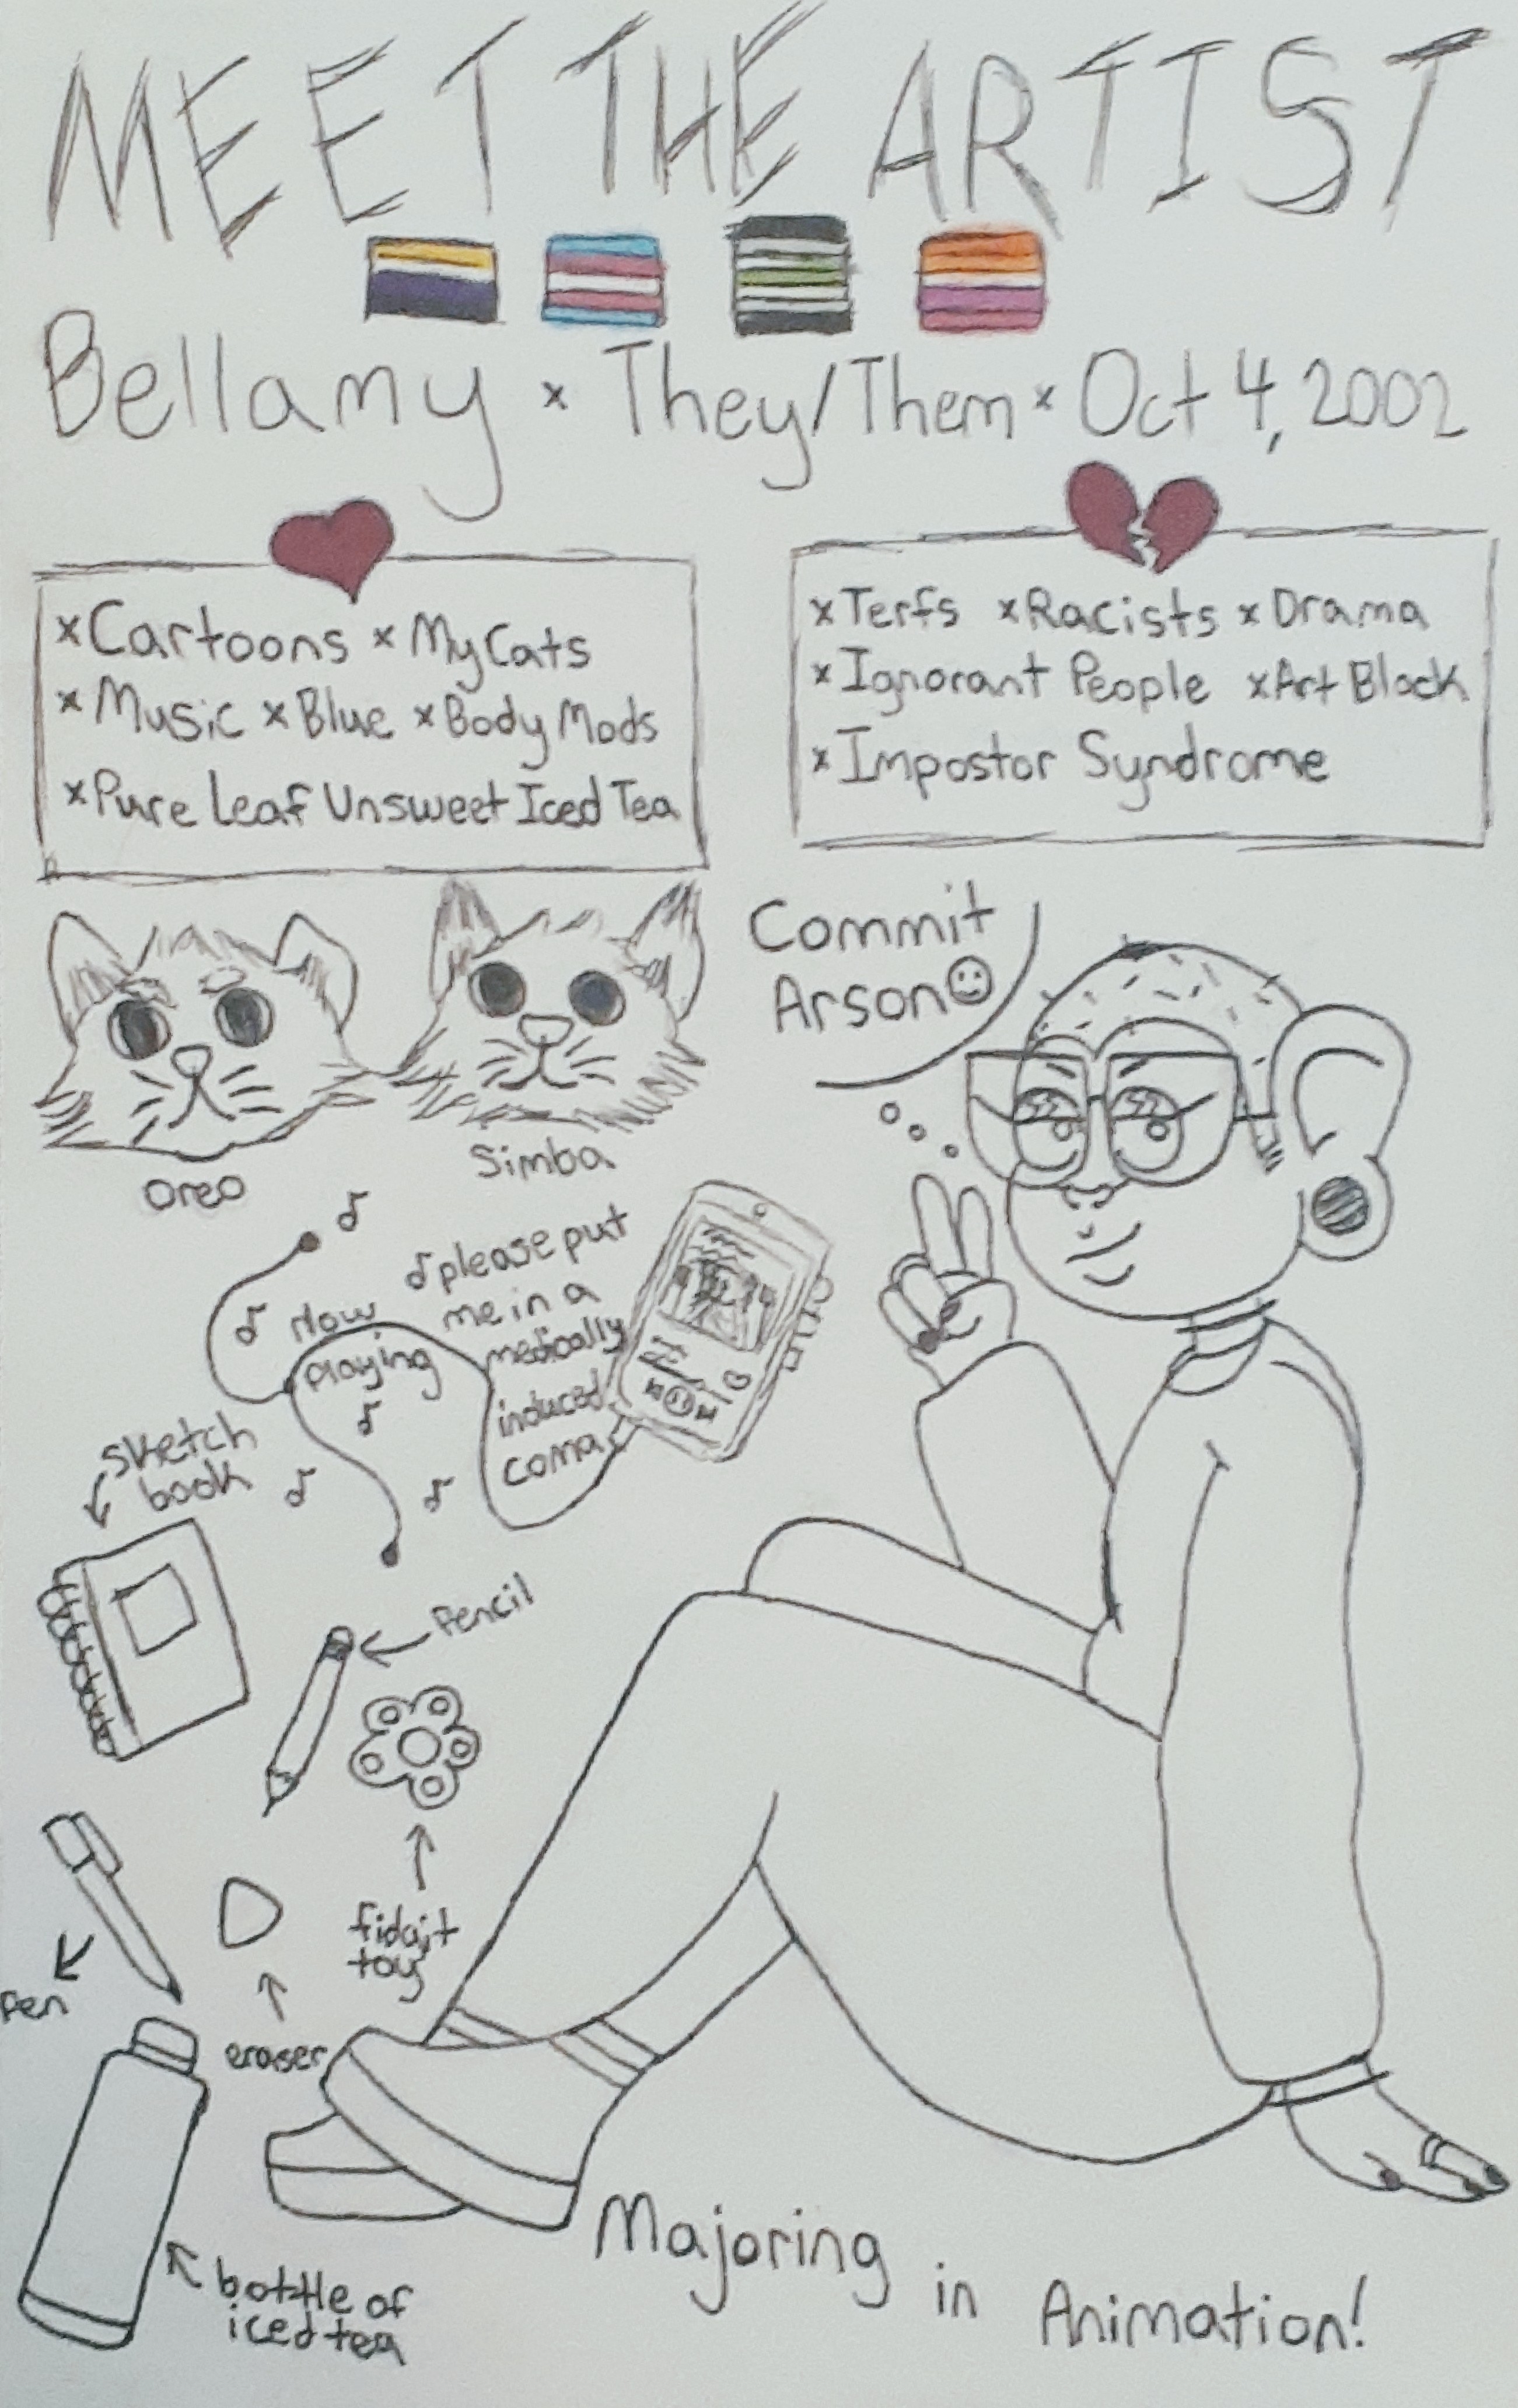 MEET THE ARTIST
Bellamy × They/Them × Oct 4, 2002
×Cartoons ×My Cats
×Music ×Blue ×Body Mods
×Pure Leaf Unsweet Iced Tea
×Terfs ×Racists ×Drama
×Ignorant People ×Art Block
×Impostor Syndrome
Commit
Arson☺
Oreo
Simba
Now
Playing
♪please put
me in a
medically
induced
coma
sketch
book
Pencil
fidgit
toy
Pen
eraser
bottle of
iced tea
Majoring in Animation!